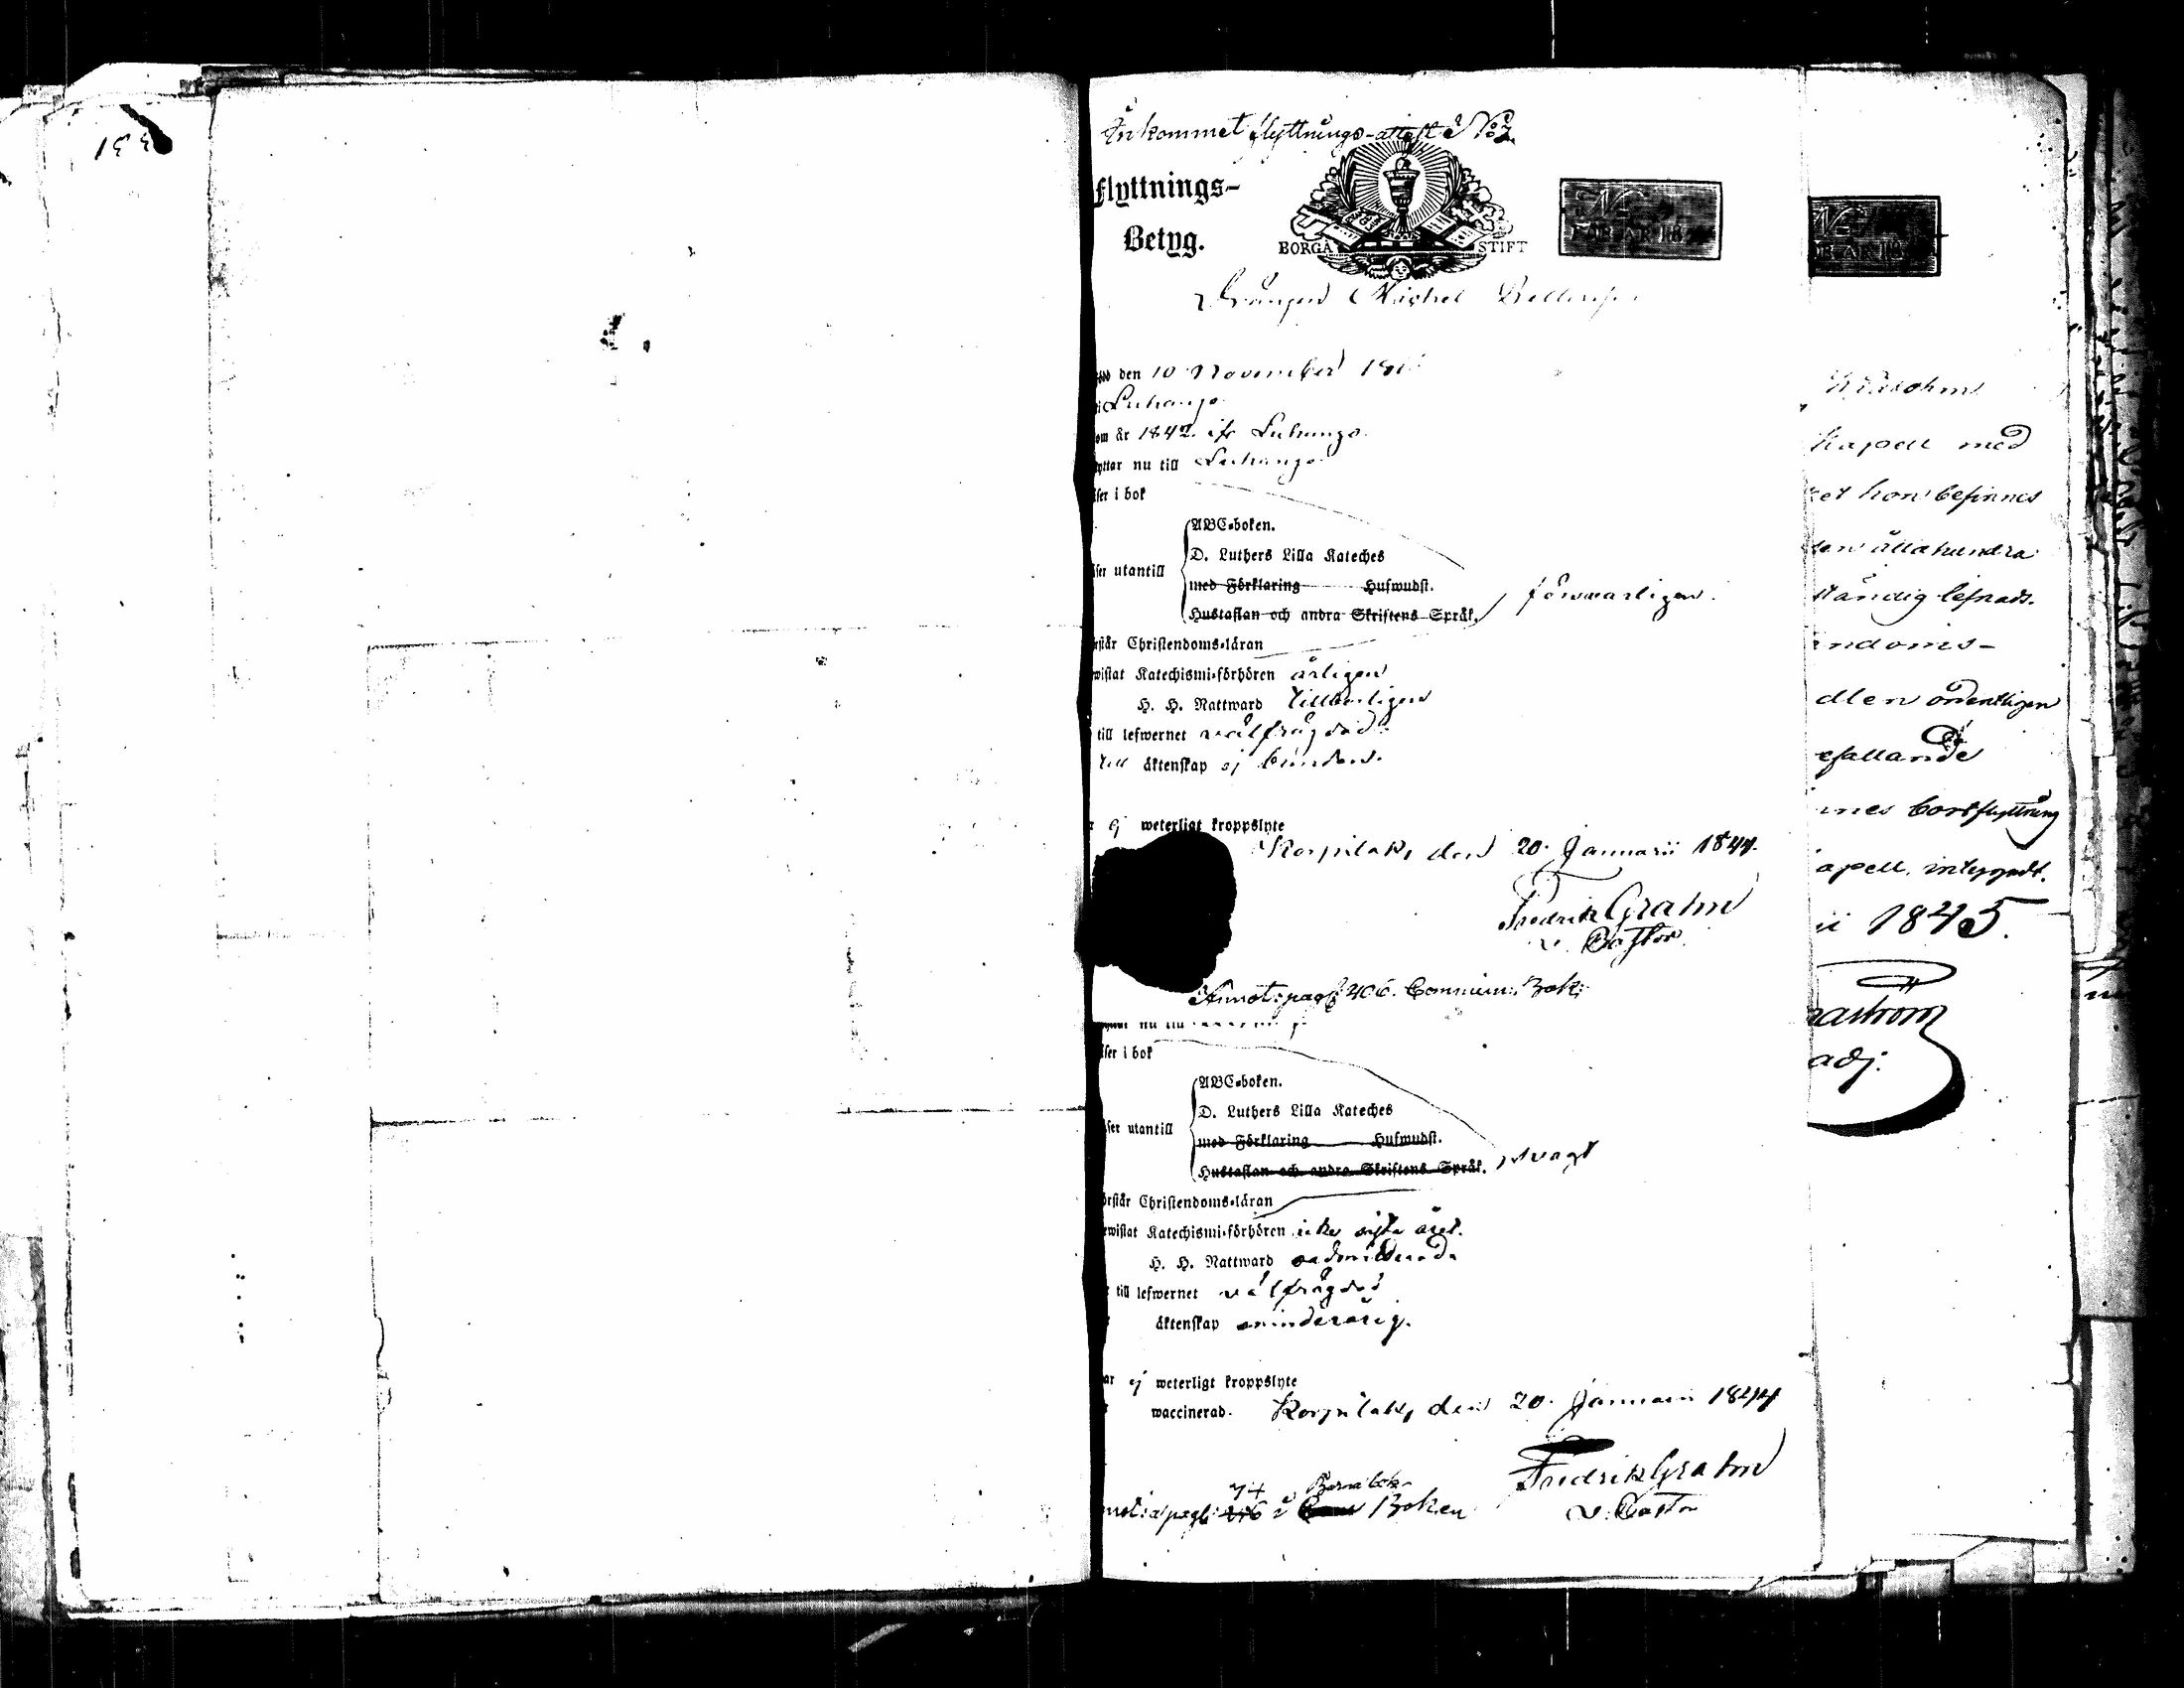 Inkommet flyttnings-attest No 2.
Flyttnings-
Betyg.
BORGÅ STIFT
FÖR ÅR 18
Drängen Michel
den 10 November 18
Luhango
om år 1842 ifr Luhango.
yttar nu till Luhango
äser i bok
ABC-boken.
D. Luthers Lilla Kateches
äser utantill
med Förklaring Hufwudst.
Hustaflan och andra Skriftens Språk.
försvarligen.
rstår Christendoms-läran
wistat Katechismi-förhören årligen
H. H. Nattward tillbörligen
till lefwernet välfrägdad.
till äktenskap ej bunden.
ej weterligt kroppslyte
Korpilaks den 20. Januarii 1844.
Fredrik Grahn
v. Pastor.
Annot: pag: 406. Commun: Bok:
nu till
äser i bok
ABC-boken.
D. Luthers Lilla Kateches
äser utantill
med Förklaring Hufwudst.
Hustaflan och andra Skriftens Språk.
svagt
örstår Christendoms-läran
ewistat Katechismi-förhören icke sista året.
H. H. Nattward oadmitterad
till lefwernet välfrägdad
äktenskap minderårig.
ar ej weterligt kroppslyte
waccinerad. Korpilaks den 20. Januarii 1844
Fredrik Grahn
v. Pastor
74 Barnabok
not: a pag: i Boken
OR ÅR 18
Kapell med
ket hon befinnes
sen åttahundra
ständig lefnads.
endoms-
dlen ordentligen
efallande
nnes bortflyttning
apell, intygadt.
ii 1845.
adj.